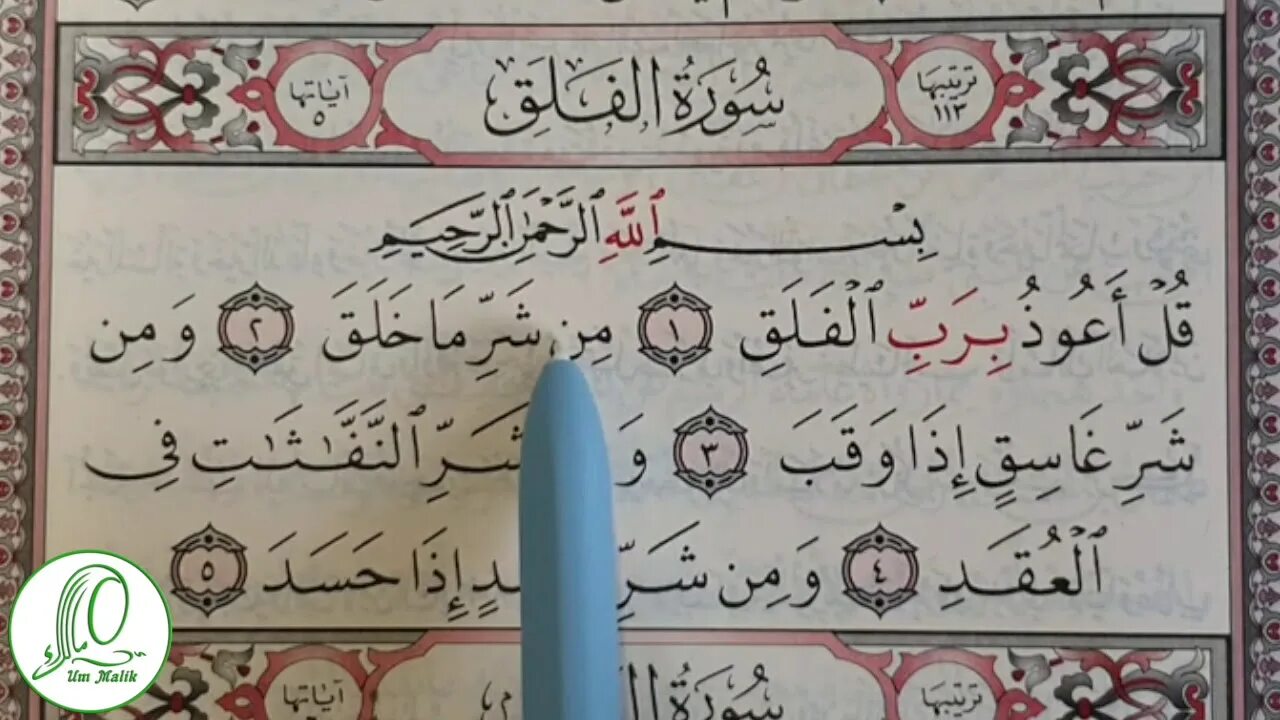 ترتيبها ١١٣ سُورَةُ الفَلَقِ آياتها ٥
بِسْمِ ٱللَّهِ ٱلرَّحْمَٰنِ ٱلرَّحِيمِ
قُلْ أَعُوذُ بِرَبِّ ٱلْفَلَقِ ١ مِن شَرِّ مَا خَلَقَ ٢ وَمِن
شَرِّ غَاسِقٍ إِذَا وَقَبَ ٣ وَ شَرِّ ٱلنَّفَّٰثَٰتِ فِى
ٱلْعُقَدِ ٤ وَمِن شَرِّ إِذَا حَسَدَ ٥
ترتيبها سُورَةُ آياتها
Um Malik